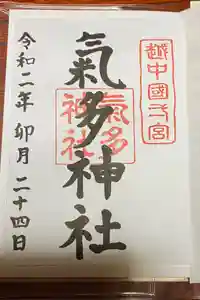 越中國一宮
氣多神社
氣多
神社
令和二年 卯月 二十四日